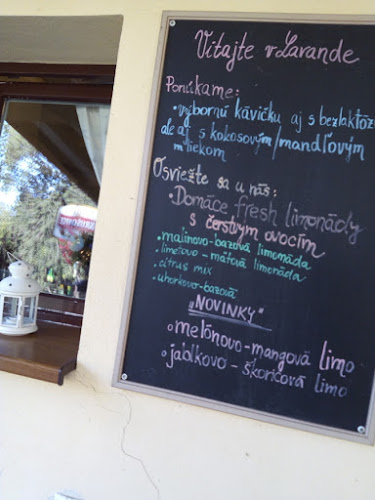 Vitajte v Lavande
Ponúkame:
• výbornú kávičku aj s bezlaktóz
ale aj s kokosovým/mandľovým
mliekom
Osviežte sa u nás:
• Domáce fresh limonády
s čerstvým ovocím
• malinovo-bazová limonáda
• limetovo-mätová limonáda
• citrus mix
• uhorkovo-bazová
"NOVINKY"
• melónovo-mangová limo
• jablkovo-škoricová limo